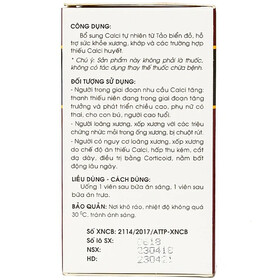 CÔNG DỤNG:
Bổ sung Calci tự nhiên từ Tảo biển đỏ, hỗ
trợ sức khỏe xương, khớp và các trường hợp
thiếu Calci huyết.
* Chú ý: Sản phẩm này không phải là thuốc,
không có tác dụng thay thế thuốc chữa bệnh.
ĐỐI TƯỢNG SỬ DỤNG:
- Người trong giai đoạn nhu cầu Calci tăng:
thanh thiếu niên đang trong giai đoạn tăng
trưởng và phát triển chiều cao, phụ nữ có
thai, cho con bú, người già.
- Người loãng xương, xốp xương với các triệu
chứng nhức mỏi trong ống xương, bị chuột rút.
- Người có nguy cơ loãng xương, xốp xương
do chế độ ăn thiếu Calci, hấp thu kém, cắt
dạ dày, điều trị bằng Corticoid, nấm bất động.
LIỀU DÙNG - CÁCH DÙNG:
Uống 1 viên sau bữa ăn sáng, 1 viên sau
bữa ăn trưa.
BẢO QUẢN: Nơi khô ráo, nhiệt độ không quá
30 ºC, tránh ánh sáng.
Số XNCB: 2114/2017/ATTP-XNCB
Số lô SX: 0618
NSX: 230418
HD: 230421